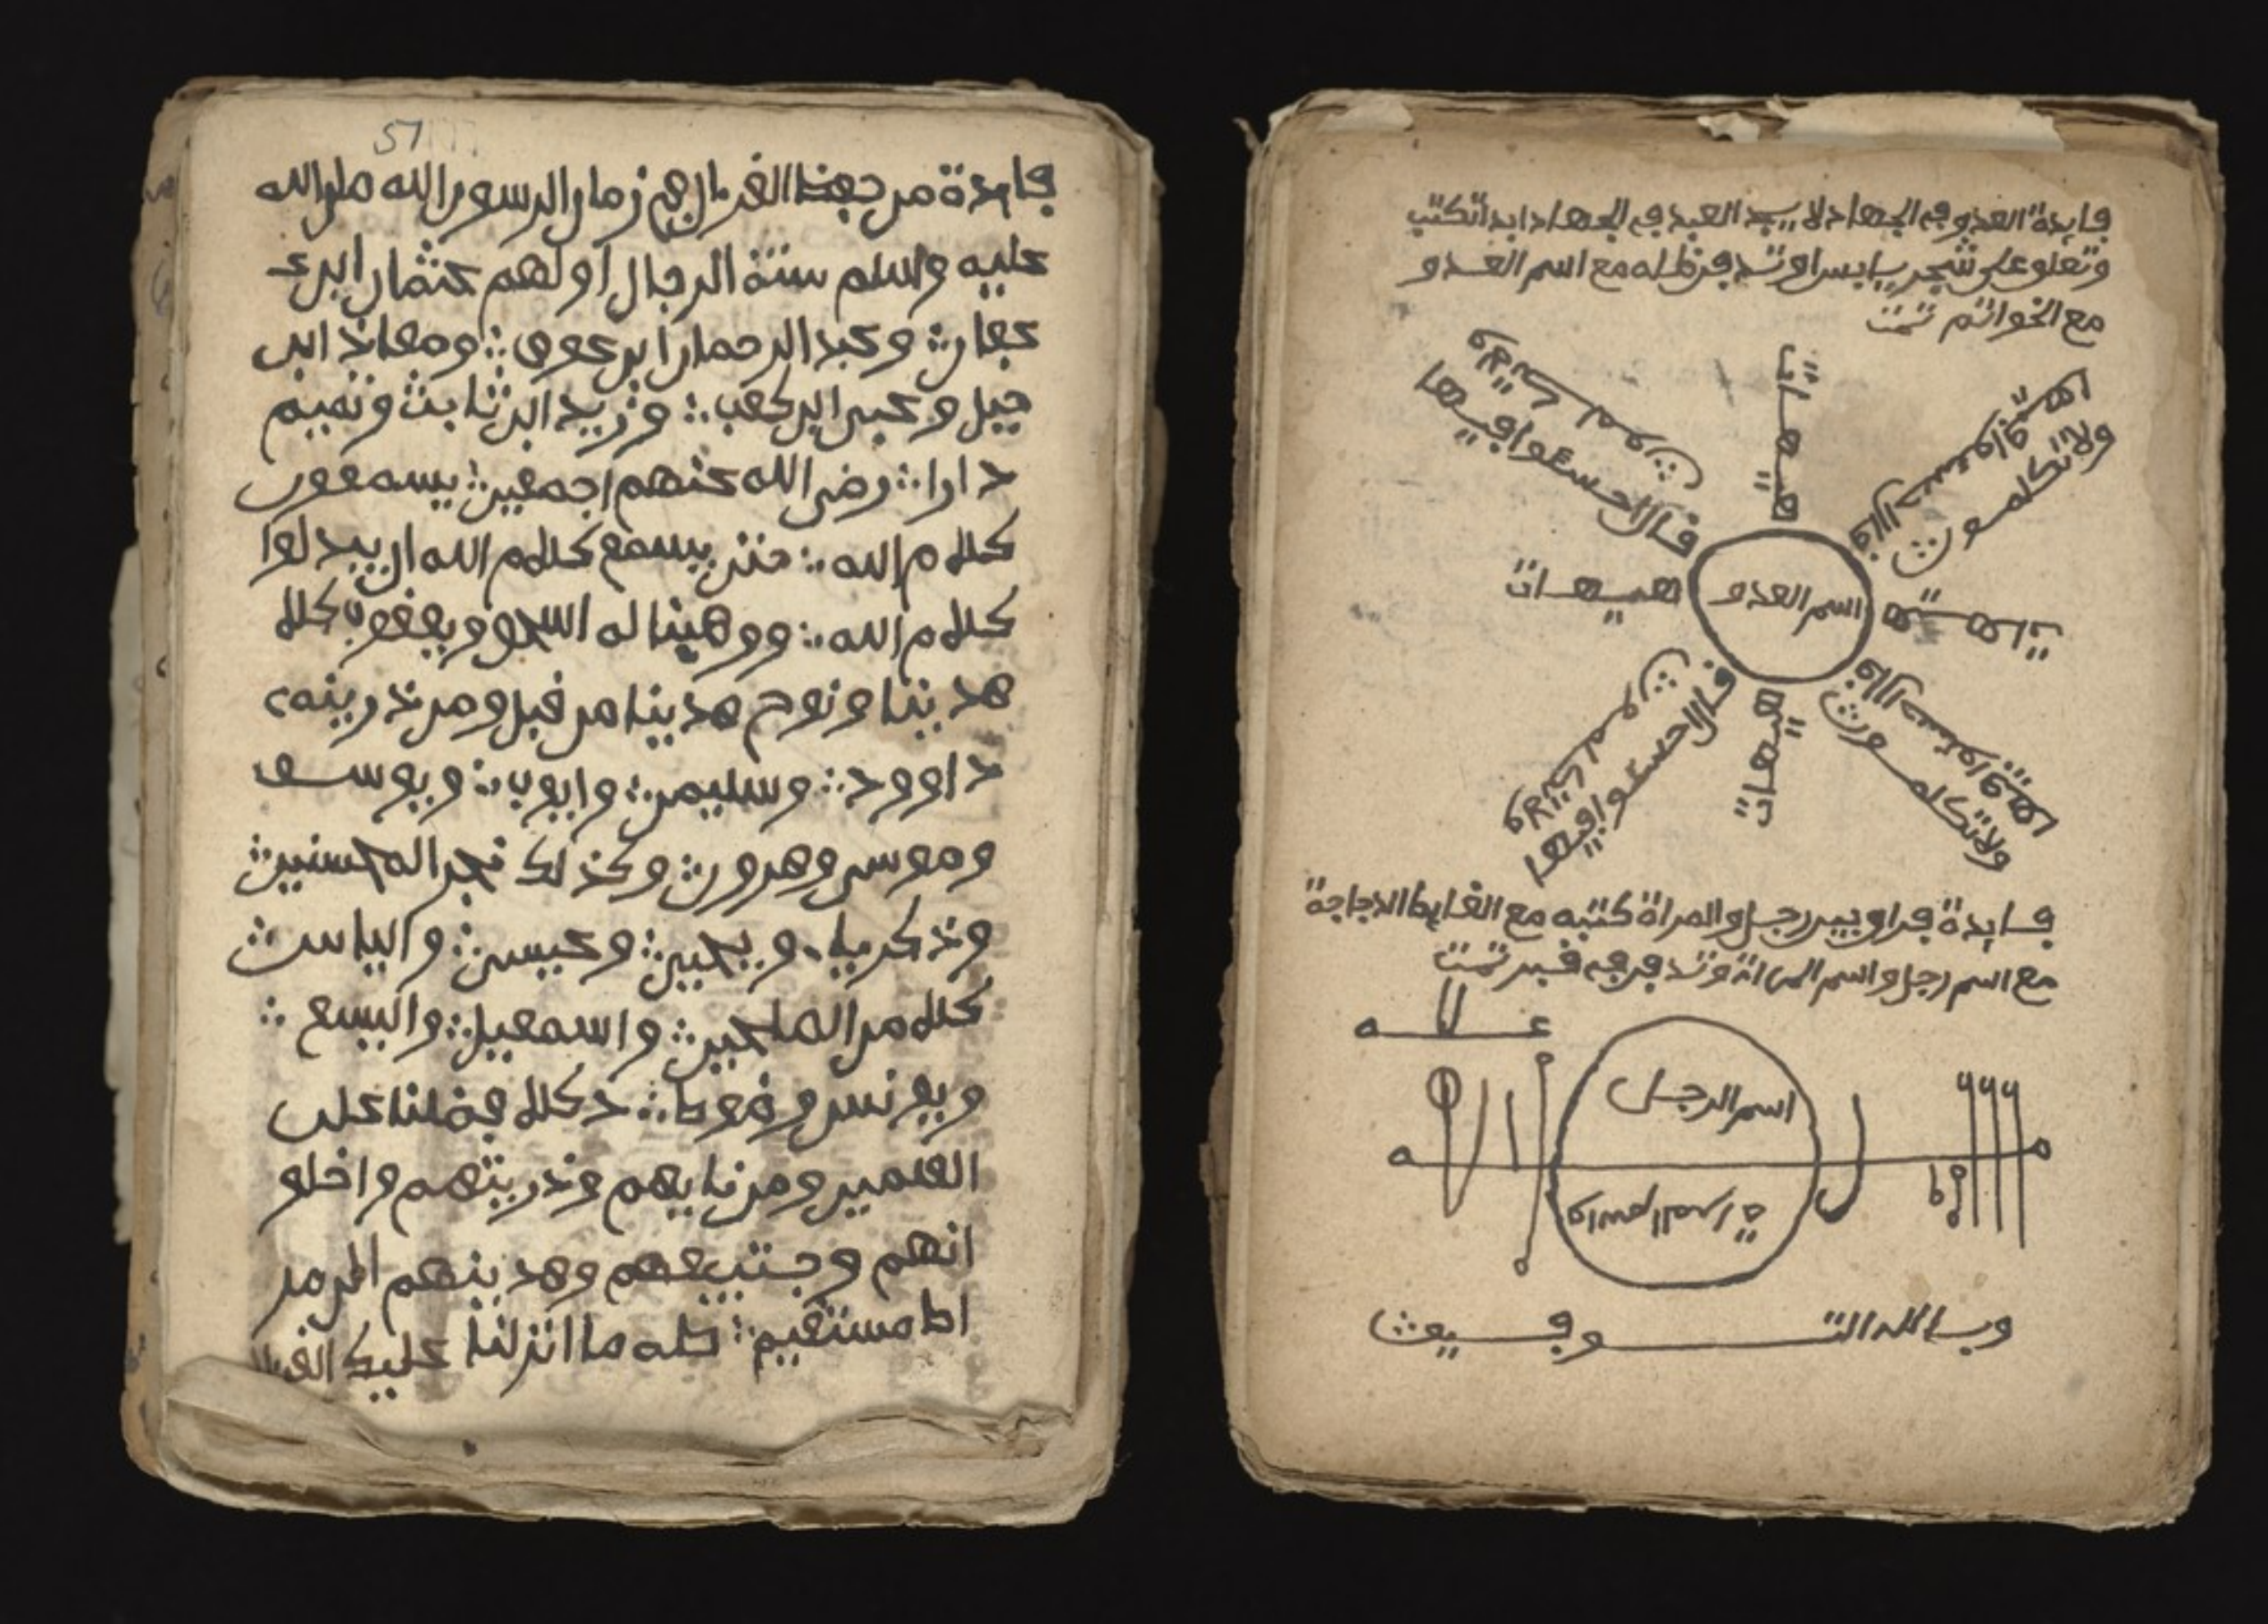 57
فايدة من حفظ القرءان في زمان الرسول الله صلى الله
عليه وسلم ستة الرجال اولهم عثمان ابن ع
عفان وعبد الرحمان ابن عوف ومعاذ ابن
جبل و ابن كعب وزيد ابن ثابت وتميم
دارا رضي الله عنهم اجمعين يسمعون
كلام الله حتى يسمع كلام الله ان يبدلوا
كلام الله ووهبنا له اسحق ويعقوب كلا
هدينا ونوح هدينا من قبل ومن ذريته
داوود وسليمن وايوب ويوسف
وموسى وهرون وكذلك نجز المحسنين
وذكريا ويحيى وعيسى والياس
كلا من الصلحين واسمعيل واليسع
ويونس ولوطا كلا فضلنا على
العلمين ومن ايهم وذريتهم واخلو
انهم وجتبيعهم وهدينهم الى صر
اط مستقيم طه ما انزلنا عليك القر
فايدة العدو في الجهاد لا العبد في الجهاد ابدا تكتب
وتعلو على شجر يابس او تدفن مع اسم العدو
مع الخواتم تمت
هيهات
قال اخسئوا فيها
ولا تكلمون
قال اخسئوا فيها
ولا تكلمون
هيهات
اسم العدو
هيهات
قال اخسئوا فيها
ولا تكلمون
هيهات
قال اخسئوا فيها
ولا تكلمون
فايدة فراو بين رجل والمراة كتبه مع الدجاجة
مع اسم رجل واسم المراة وتدفن في قبر تمت
اسم الرجل
اسم المراة
وبالله التوفيق